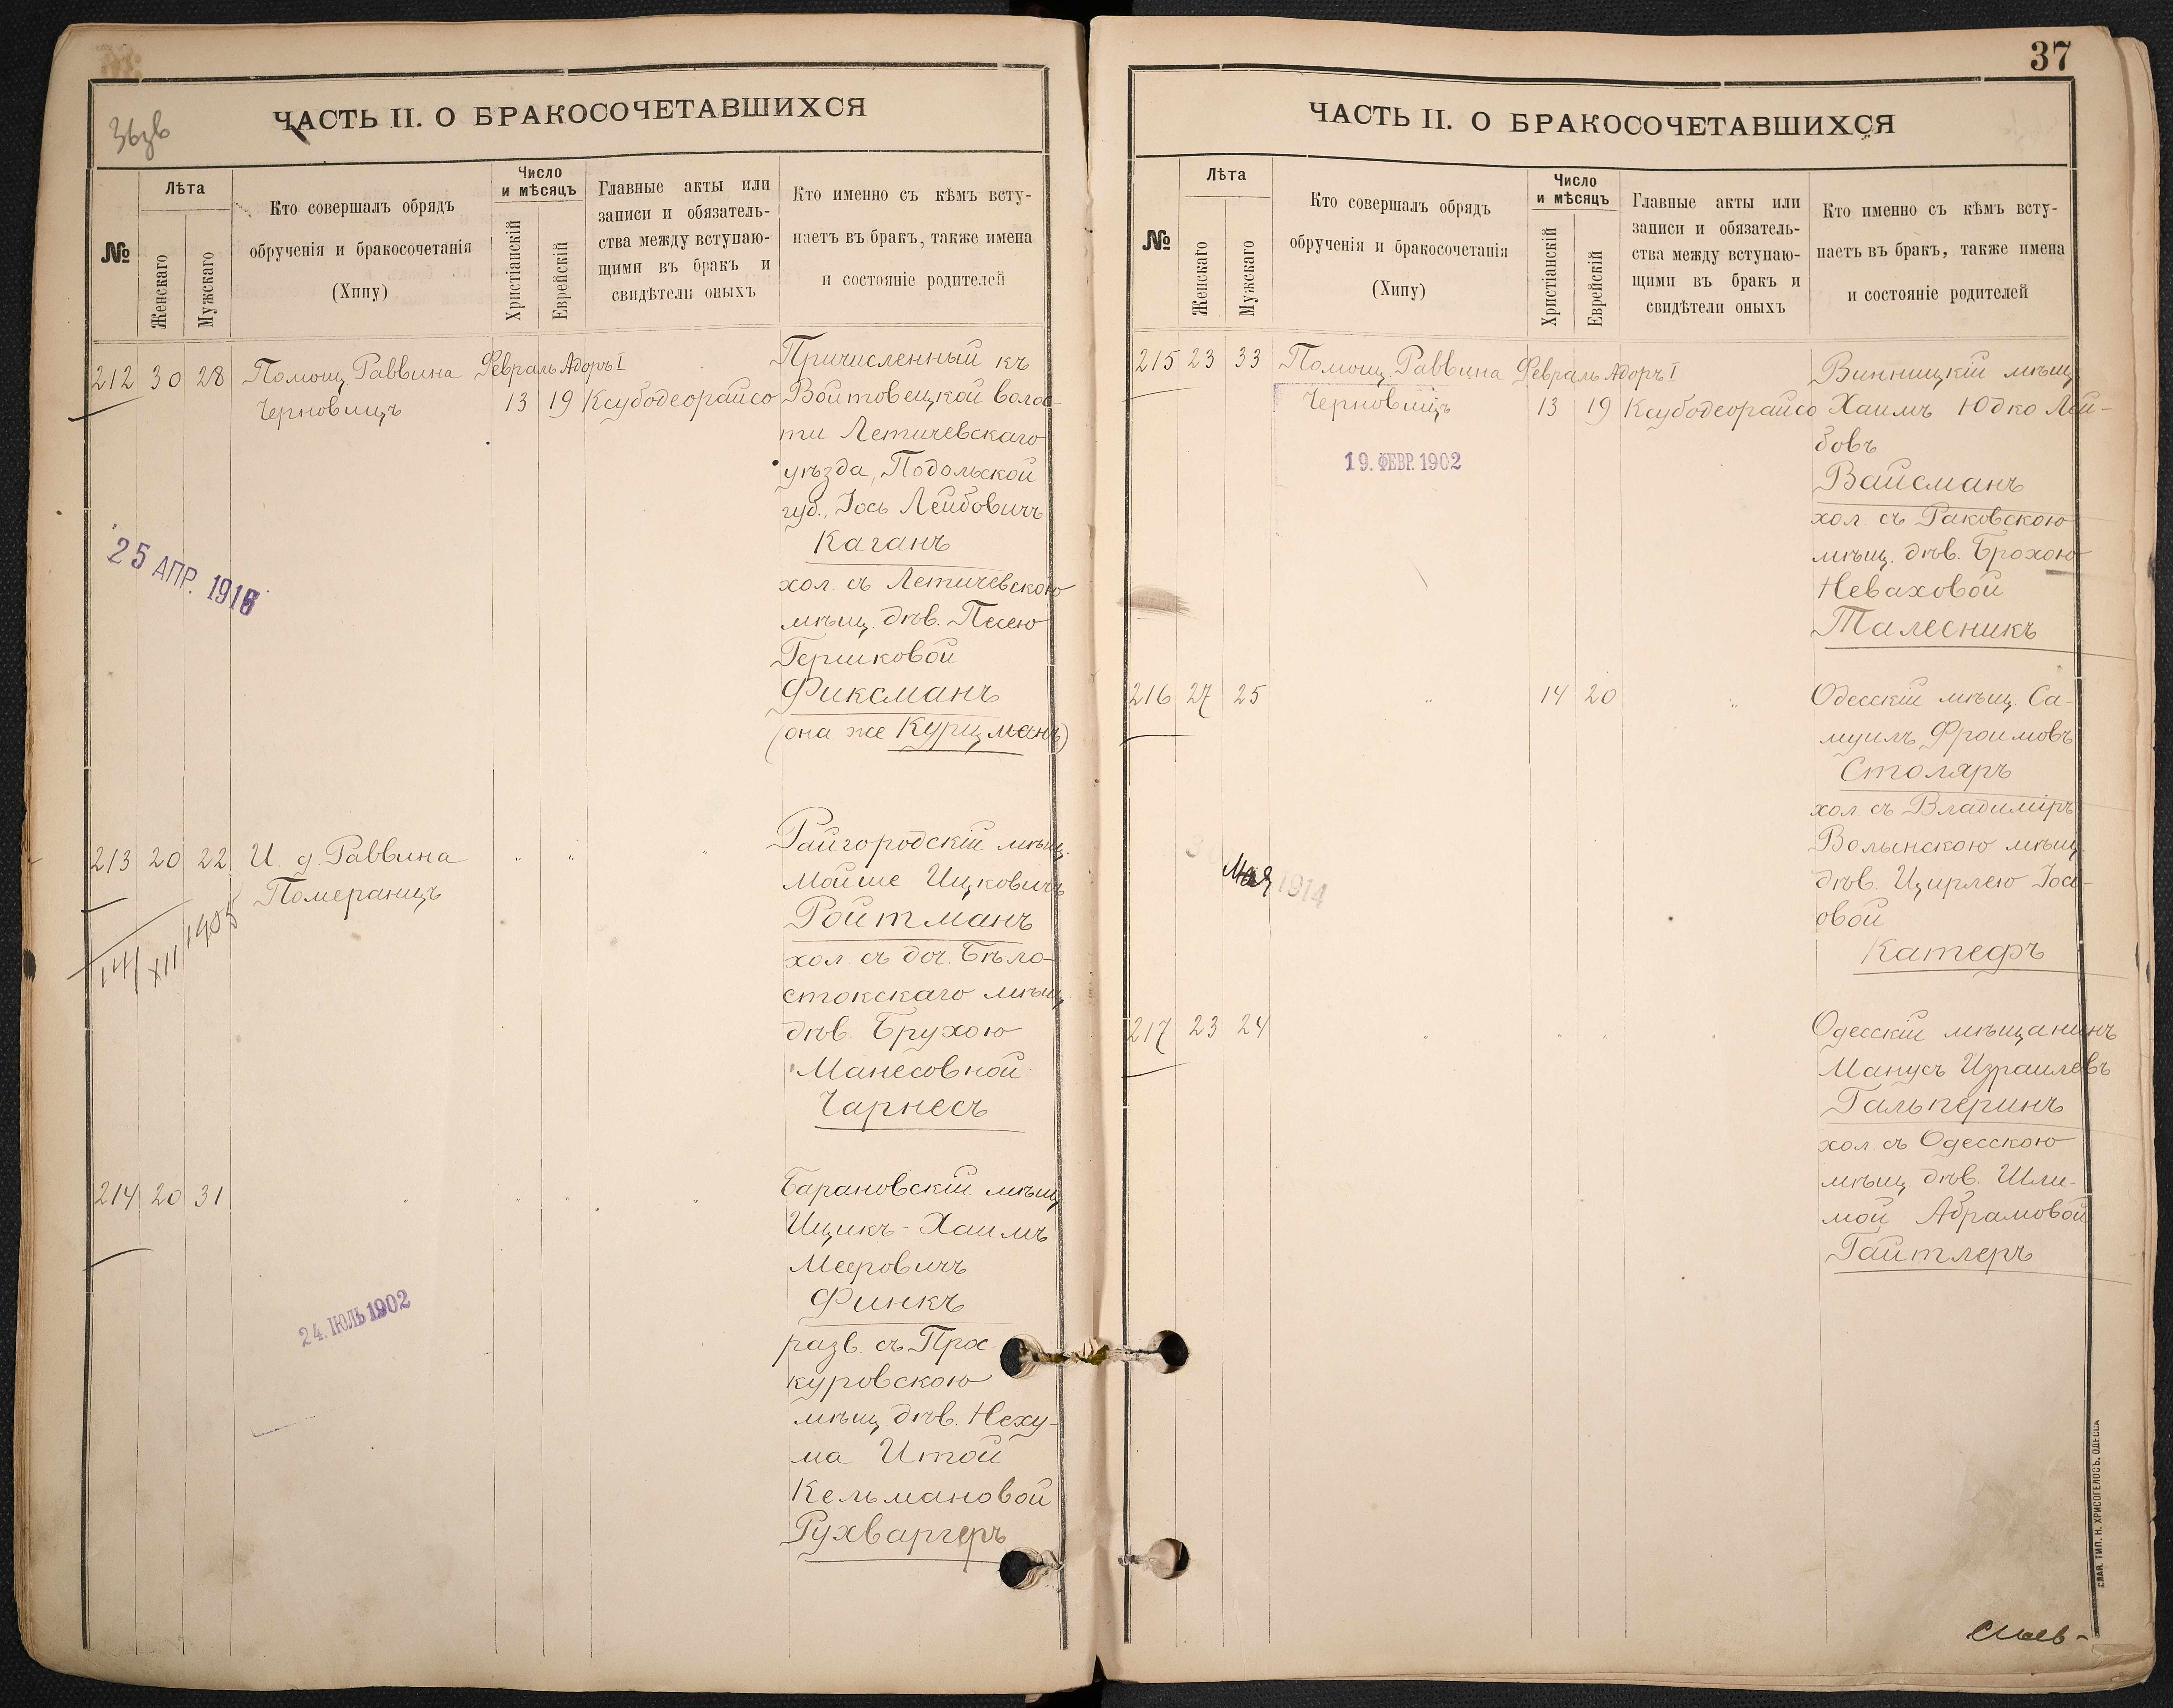 36зв
ЧАСТЬ II. О БРАКОСОЧЕТАВШИХСЯ
№
Лѣта
Женскаго
Мужскаго
Кто совершалъ обрядъ
обрученія и бракосочетанія
(Хипу)
Число
и мѣсяцъ
Христіанскій
Еврейскій
Главные акты или
записи и обязатель-
ства между вступаю-
щими въ бракъ и
свидѣтели оныхъ
Кто именно съ кѣмъ всту-
паетъ въ бракъ, также имена
и состояніе родителей
212 30 28 Помощ. Раввина Февраль Адоръ I
Черновицъ 13 19 Ксубодеорайсо
Причисленный къ
Войтовецкой волос-
ти Летичевскаго
уѣзда, Подольской
губ., Іось Лейбовичъ
Каганъ
хол. съ Летичевскою
мѣщ. дѣв. Песею
Гершковой
Фиксманъ
(она же Курцманъ)
25 АПР. 1916
213 20 22 И. д. Раввина " " "
Померанцъ
14/XII 1905
Райгородскій мѣщ.
Мойше Ицковичъ
Ройтманъ
хол. съ доч. Бѣло-
стокскаго мѣщ.
дѣв. Брухою
Манесовной
Чарнесъ
214 20 31 " " " "
Барановскій мѣщ.
Ицикъ-Хаимъ
Мееровичъ
Финкъ
разв. съ Прос-
куровскою
мѣщ. дѣв. Неху-
ма Итой
Кельмановой
Рухваргеръ
24. ІЮЛЬ 1902
37
ЧАСТЬ II. О БРАКОСОЧЕТАВШИХСЯ
№
Лѣта
Женскаго
Мужскаго
Кто совершалъ обрядъ
обрученія и бракосочетанія
(Хипу)
Число
и мѣсяцъ
Христіанскій
Еврейскій
Главные акты или
записи и обязатель-
ства между вступаю-
щими въ бракъ и
свидѣтели оныхъ
Кто именно съ кѣмъ всту-
паетъ въ бракъ, также имена
и состояніе родителей
215 23 33 Помощ. Раввина Февраль Адоръ I
Черновицъ 13 19 Ксубодеорайсо
19. ФЕВР. 1902
Винницкій мѣщ.
Хаимъ Юдко Лей-
бовъ
Вайсманъ
хол. съ Раковскою
мѣщ. дѣв. Брохою
Неваховой
Талесникъ
216 27 25 " 14 20 "
Одесскій мѣщ. Са-
муилъ Фроимовъ
Столяръ
хол. съ Владиміръ
Волынскою мѣщ.
дѣв. Цирлею Іос-
овой
Катефъ
Мая 1914
217 23 24 " " " "
Одесскій мѣщанинъ
Манусъ Израилевъ
Гальперинъ
хол. съ Одесскою
мѣщ. дѣв. Шли-
мой Абрамовой
Гайтлеръ
СЛАВ. ТИП. Н. ХРИСОГЕЛОСЪ, ОДЕССА